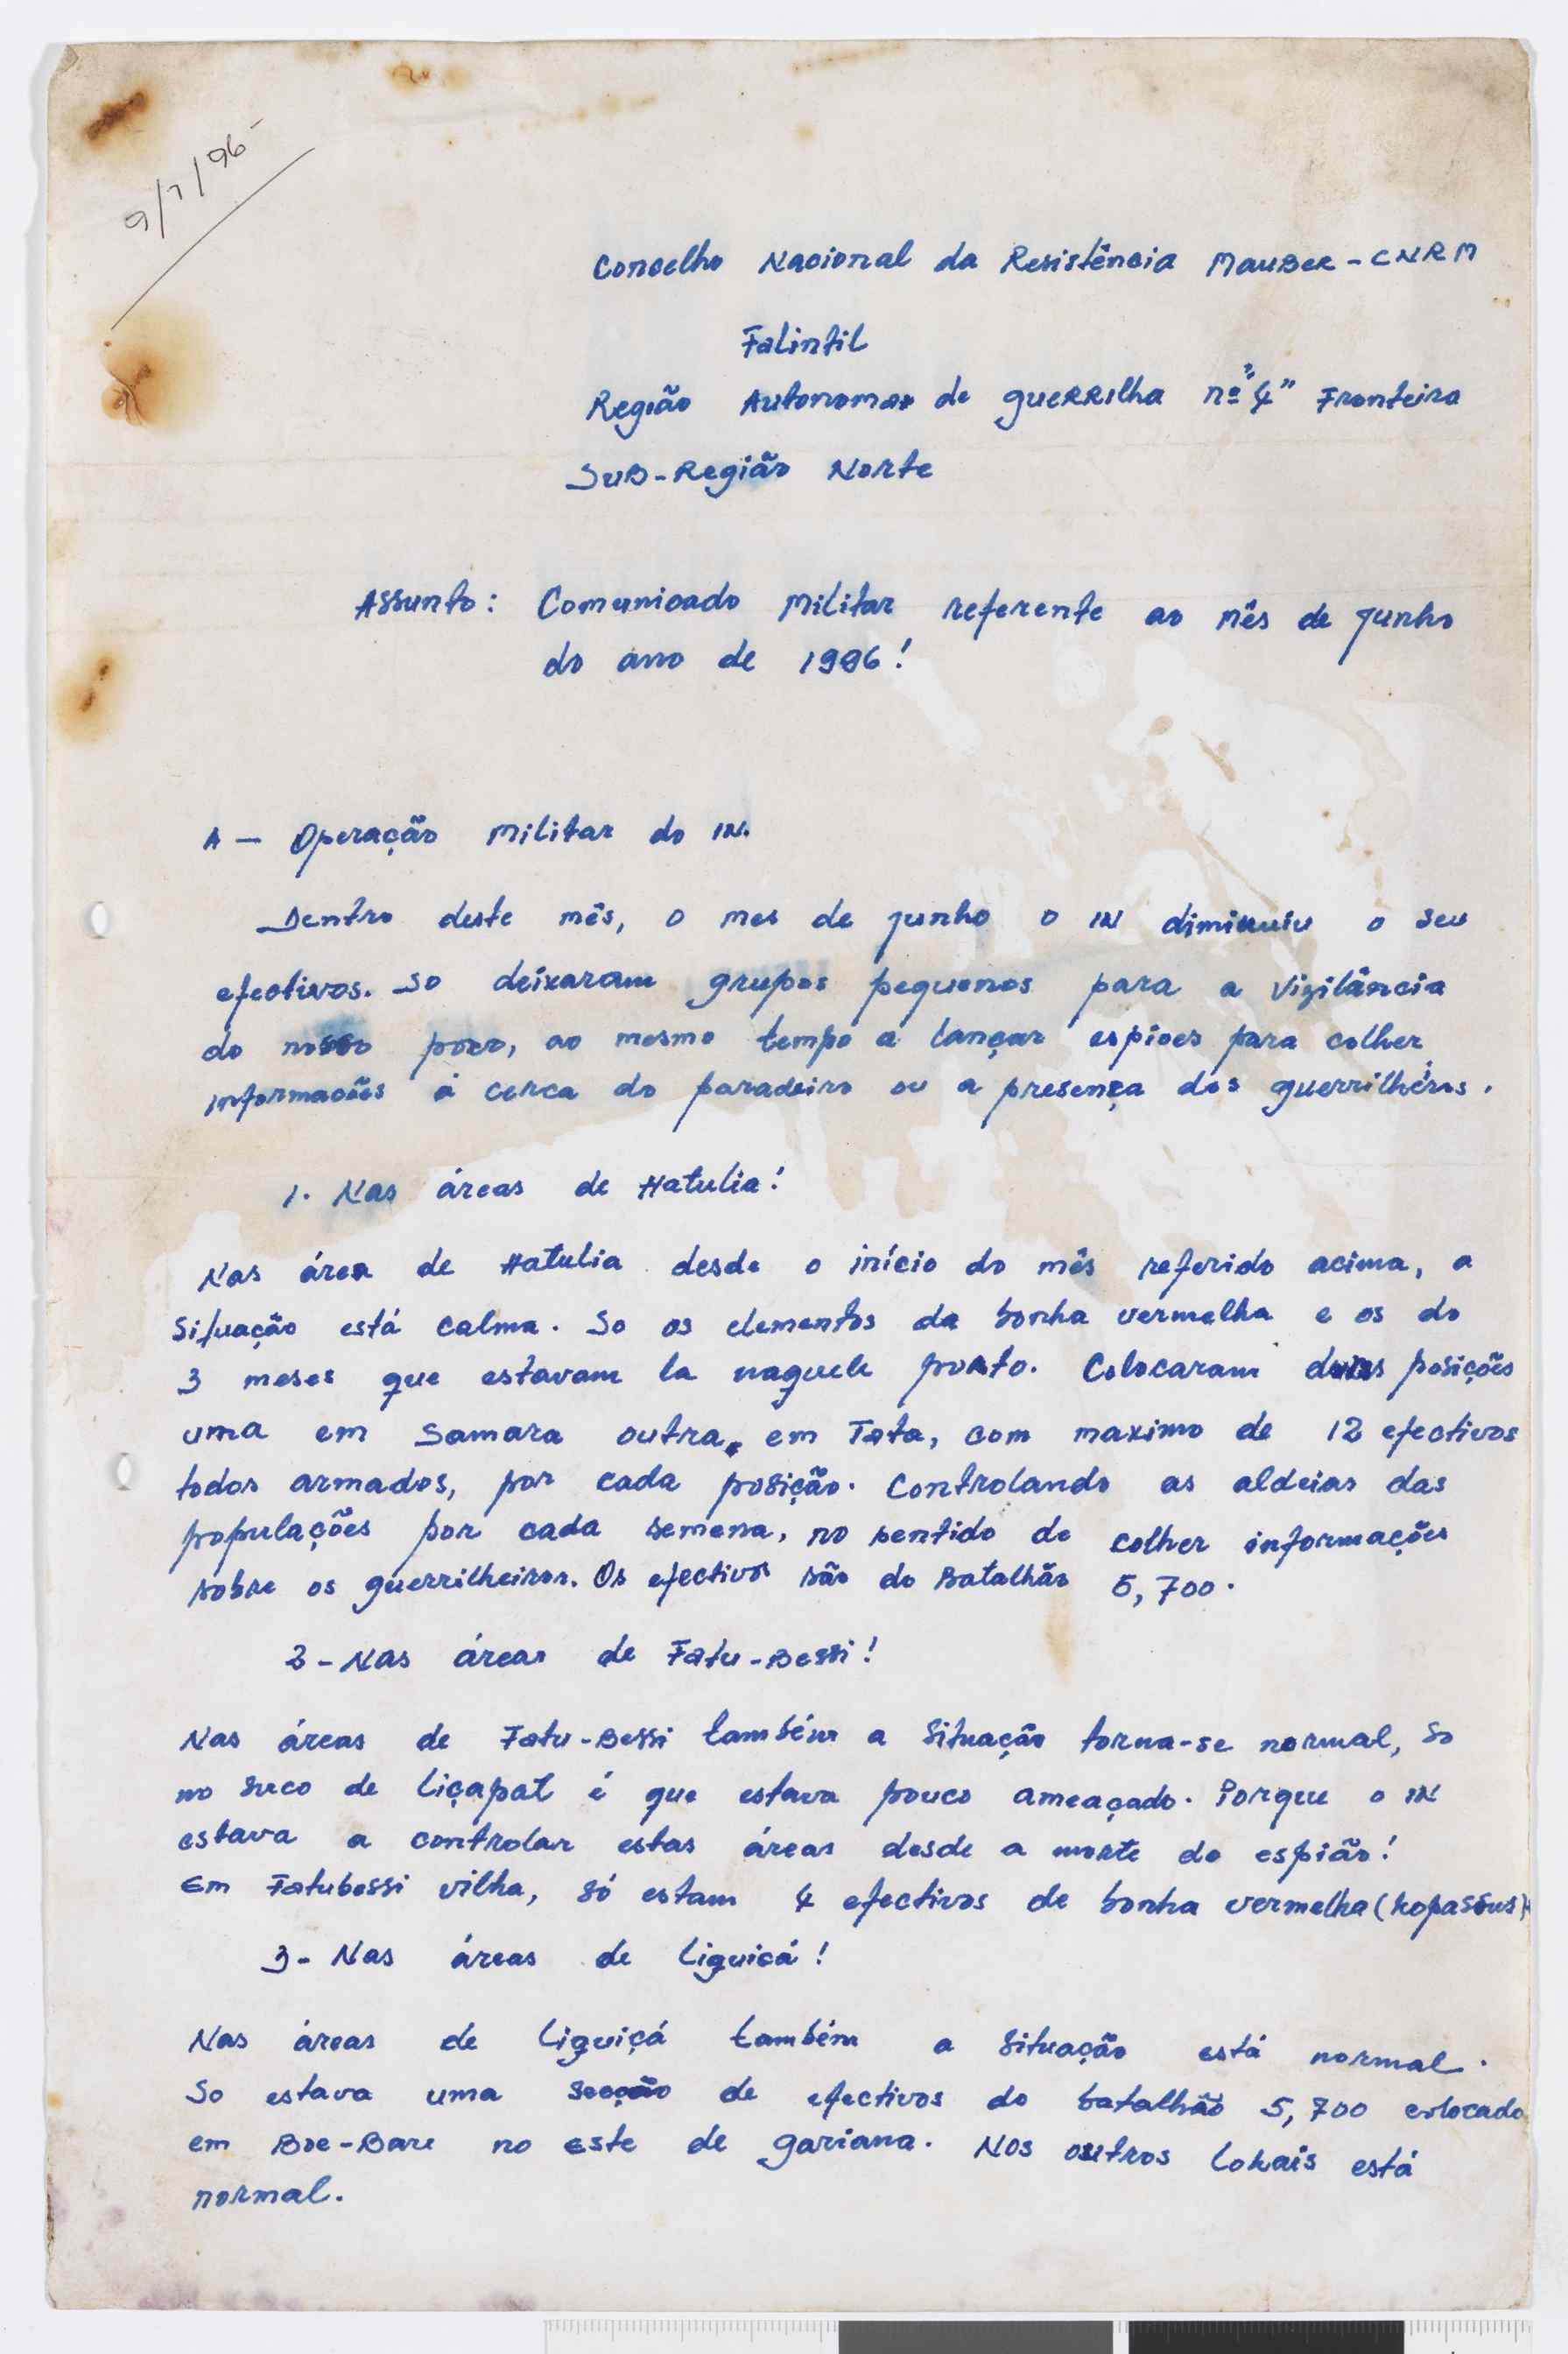 9/7/96-
Concelho Nacional da Resistência MauBer - CNRM
Falintil
Região Autonoma de guerrilha nº "4" Fronteira
Sub-Região Norte
Assunto: Comunicado Militar referente ao Mês de junho
do ano de 1996!
A - Operação Militar do IN.
Dentro deste mês, o mes de junho o IN diminuiu o seu
efectivos. So deixaram grupos pequenos para a vigilância
do nosso povo, ao mesmo tempo a lançar espioes para colher
informacões á cerca do paradeiro ou a presença dos guerrilhéros.
1. Nas áreas de Hatulia!
Nas área de Hatulia desde o início do mês referido acima, a
situação está calma. So os elementos da bonha vermelha e os do
3 meses que estavam la naquele posto. Colocaram duas posições
uma em Samara outra em Tata, com maximo de 12 efectivos
todos armados, por cada posição. Controlando as aldeias das
populações por cada semena, no sentido de colher informações
sobre os guerrilheiros. Os efectivos são do Batalhão 5,700.
2 - Nas áreas de Fatu-Bessi!
Nas áreas de Fatu-Bessi também a situação torna-se normal, so
no suco de Liçapat é que estava pouco ameaçado. Porque o IN
estava a controlar estas áreas desde a morte do espião!
Em Fatubessi vilha, só estam 4 efectivos de bonha vermelha (kopassus)
3 - Nas áreas de Liquicá!
Nas áreas de Liquiçá também a situação está normal.
So estava uma secção de efectivos do batalhão 5,700 colocado
em Boe-Bare no este de gariana. Nos outros lokais está
normal.